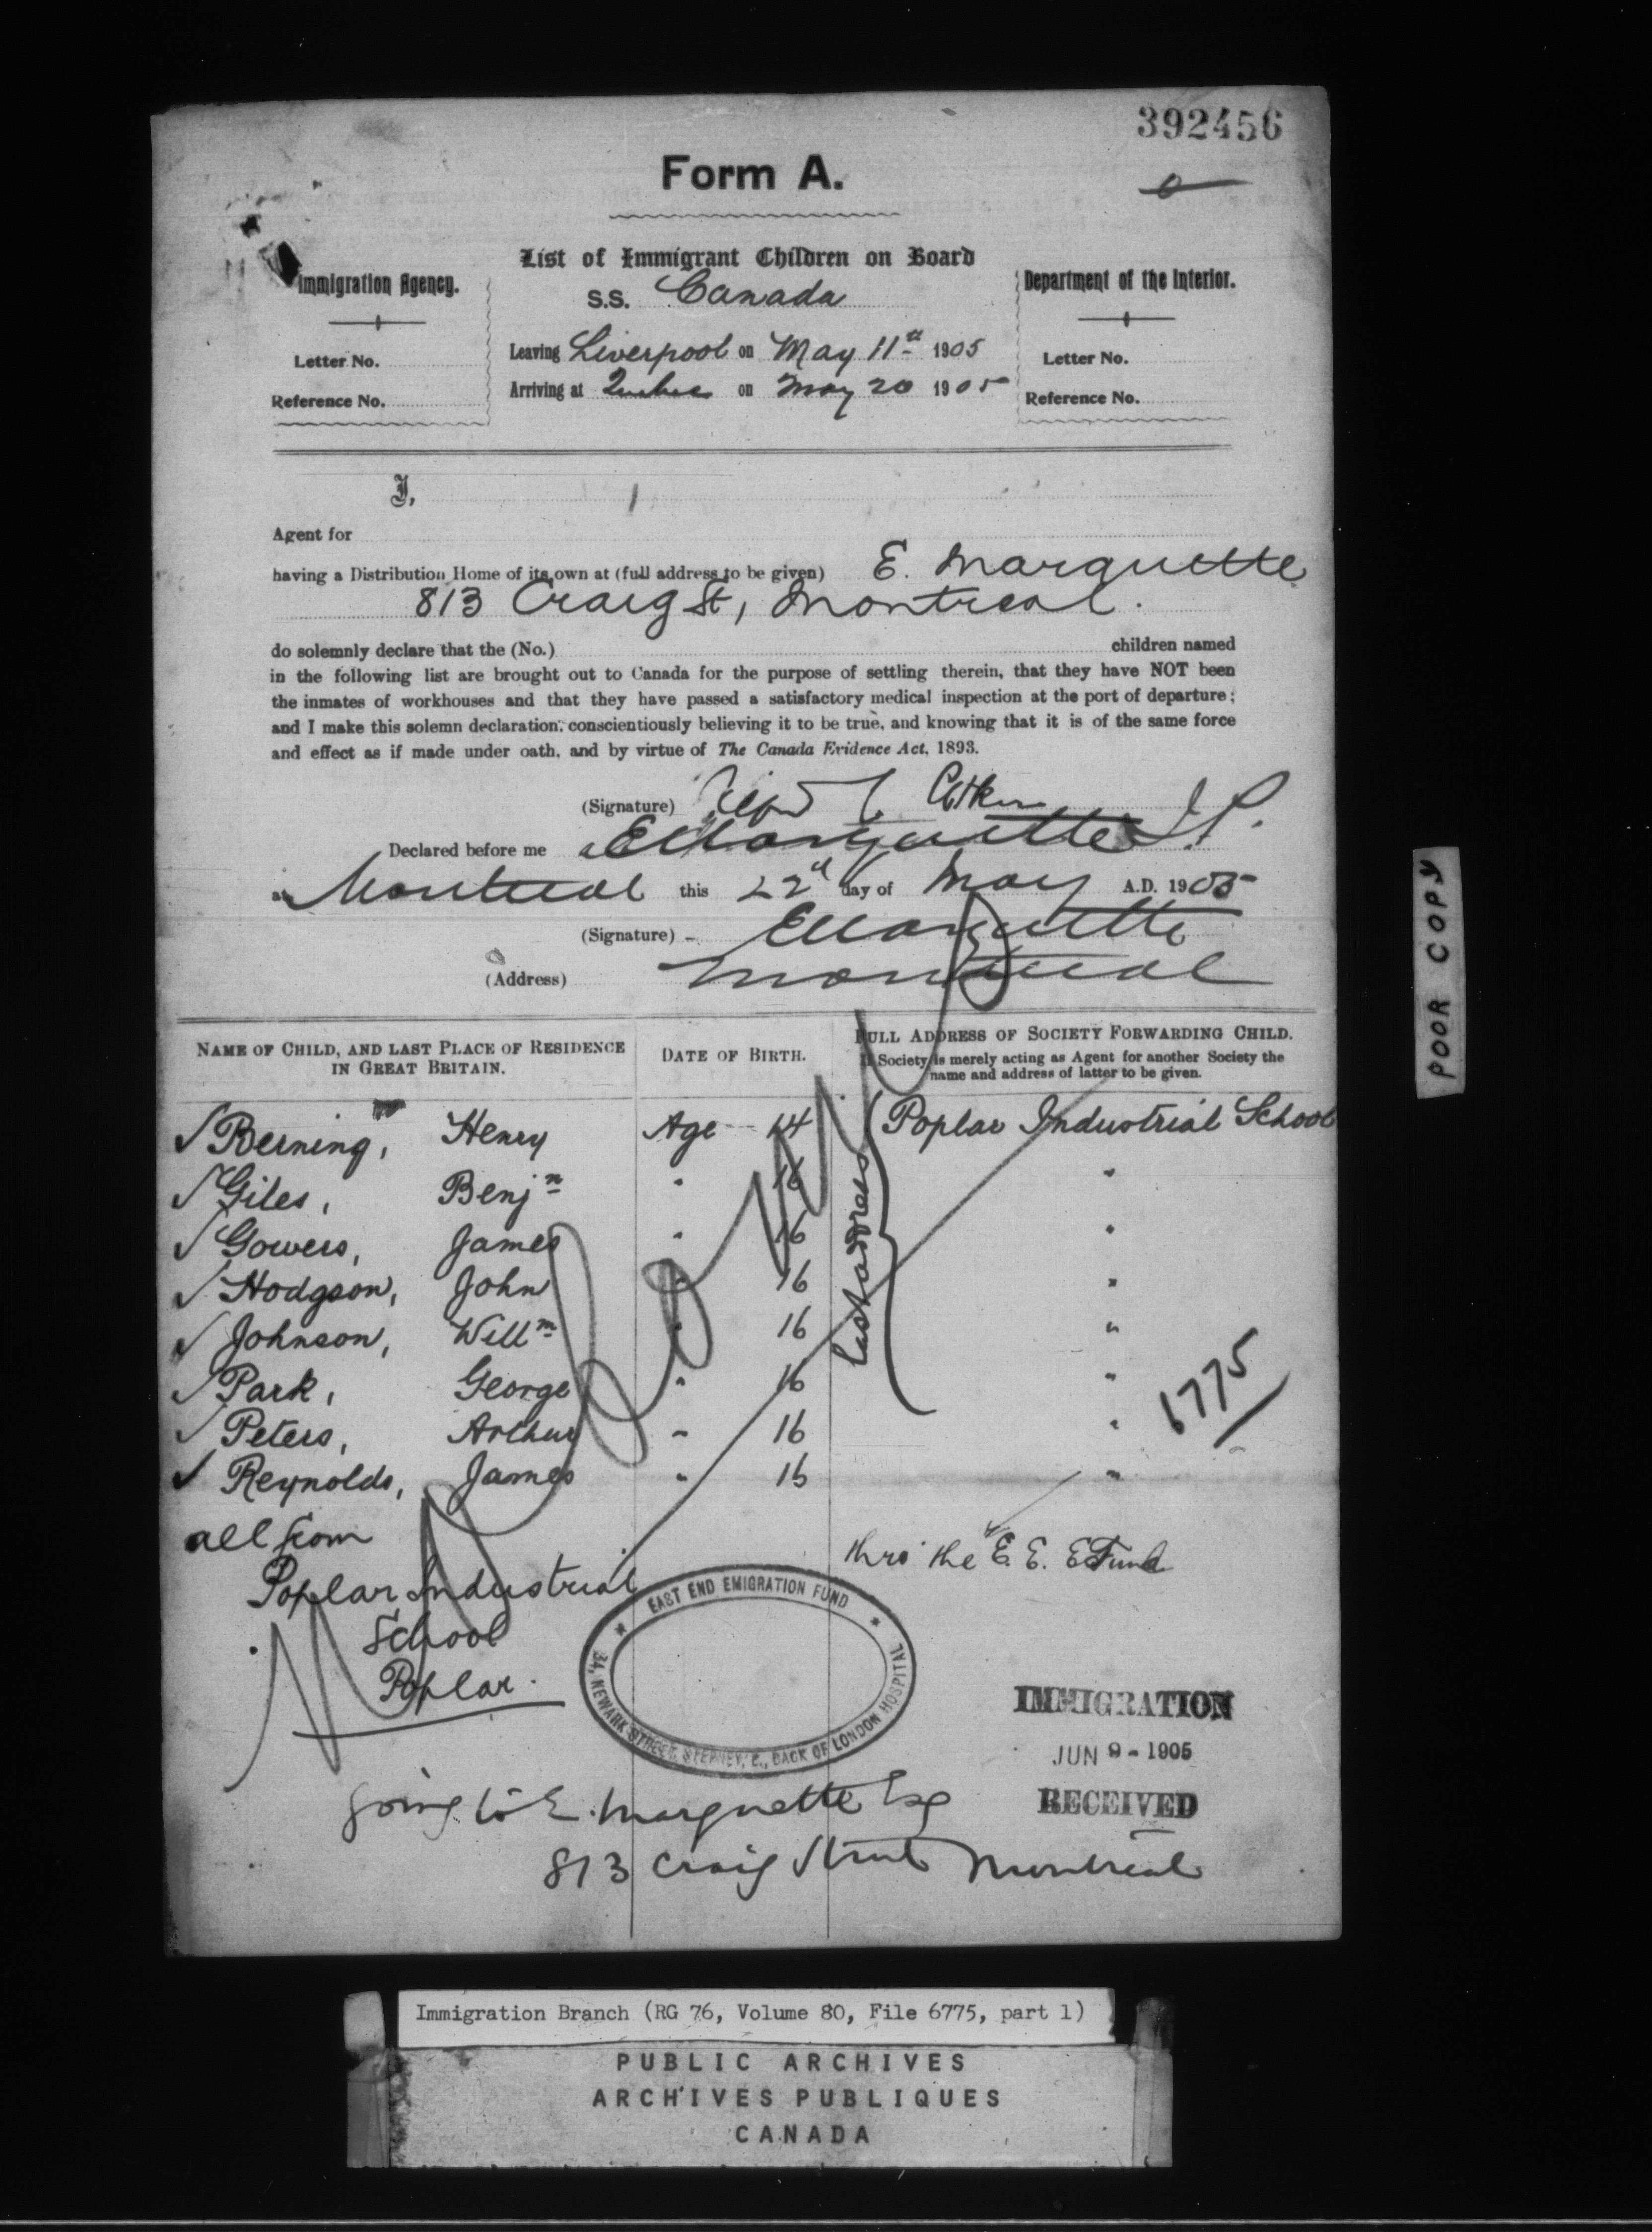 392456
Form A.
List of Immigrant Children on Board
S.S. Canada
Immigration Agency.
Department of the Interior.
Leaving Liverpool on May 11th 1905
Letter No.
Letter No.
Arriving at Quebec on May 20 1905
Reference No.
Reference No.
I,
Agent for
having a Distribution Home of its own at (full address to be given) E. Marquette
813 Craig St, Montreal.
do solemnly declare that the (No.) children named
in the following list are brought out to Canada for the purpose of settling therein, that they have NOT been
the inmates of workhouses and that they have passed a satisfactory medical inspection at the port of departure;
and I make this solemn declaration, conscientiously believing it to be true, and knowing that it is of the same force
and effect as if made under oath, and by virtue of The Canada Evidence Act, 1893.
(Signature)
Declared before me E Marquette J.P.
at Montreal this 22d day of May A.D. 1905
(Signature) E Marquette
(Address) Montreal
NAME OF CHILD, AND LAST PLACE OF RESIDENCE
IN GREAT BRITAIN.
DATE OF BIRTH.
FULL ADDRESS OF SOCIETY FORWARDING CHILD.
If Society is merely acting as Agent for another Society the
name and address of latter to be given.
√ Berning, Henry Age 14 Poplar Industrial School
√ Giles, Benjn " 16 "
√ Gowers, James " 16 "
√ Hodgson, John " 16 "
√ Johnson, Willm " 16 "
√ Park, George " 16 "
√ Peters, Arthur " 16 "
√ Reynolds, James " 15 "
last address
6775
all from
Poplar Industrial
School
Poplar.
thro' the E. E. E Fund
EAST END EMIGRATION FUND
34, NEWARK STREET, STEPNEY, E., BACK OF LONDON HOSPITAL
IMMIGRATION
JUN 9 - 1905
RECEIVED
going to E. Marquette Esq
813 Craig Street Montreal
POOR COPY
Immigration Branch (RG 76, Volume 80, File 6775, part 1)
PUBLIC ARCHIVES
ARCHIVES PUBLIQUES
CANADA